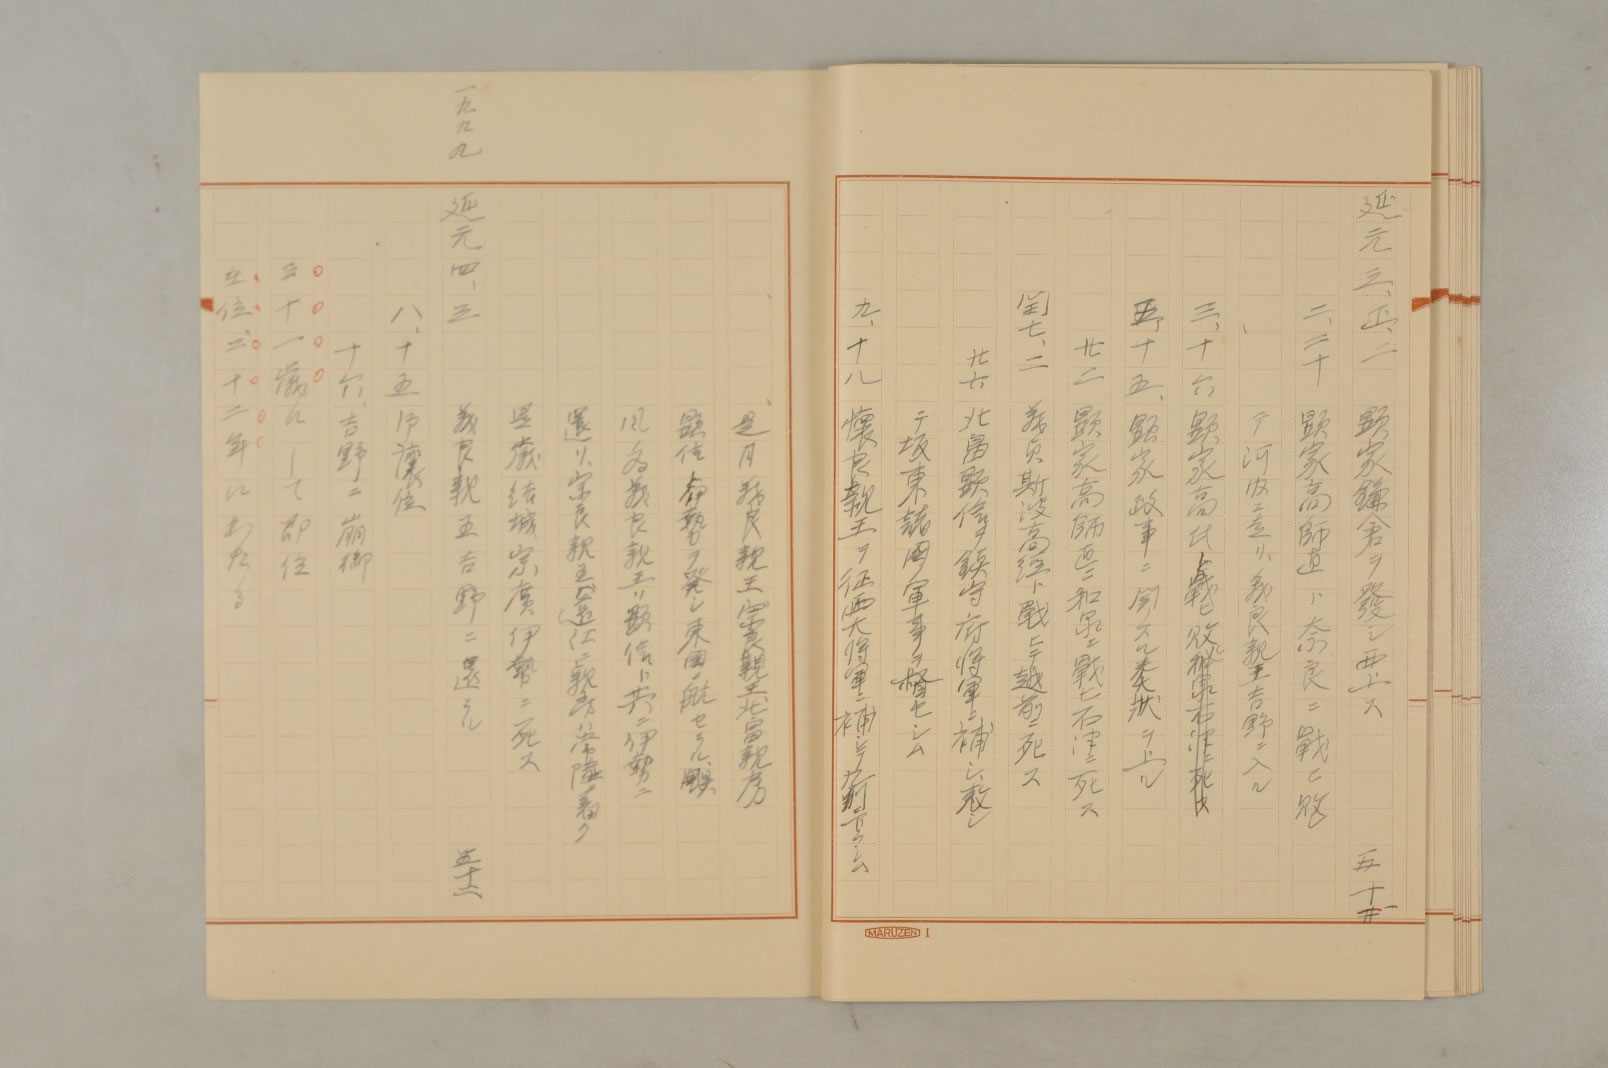 延元三、正、二　顕家鎌倉ヲ發シ西上ス　五十
二、二十　顕家高師直ト奈良ニ戰ヒ敗
テ河内ニ走リ、義良親王吉野ニ入ル
三、十六　顕家高氏
五、十五、顕家政事ニ関スル奏状ヲ上ル
廿二　顕家高師直ニ和泉ニ戰ヒ石津ニ死ス
閏七、二　義貞斯波高経ト戰ヒテ越前ニ死ス
廿六　北畠顕信ヲ鎮守府将軍ニ補シ
テ坂東諸国軍事ヲ督セシム
九、十八　懐良親王ヲ征西大将軍ニ補シテ
MARUZEN 1
是月義良親王宗良親王北畠親房
顕信伊勢ヲ発シ東国ニ航セラル、颶
風ノ為義良親王ハ顕信ト共ニ伊勢ニ
還リ、宗良親王ハ遠江ニ親房ハ常陸ニ着ク
是歳結城宗廣伊勢ニ死ス
一九九九　延元四、三　義良親王吉野ニ還ル　五十二
八、十五　御讓位
十六、吉野ニ崩御
三十一歳にして即位
在位二十二年にわたる